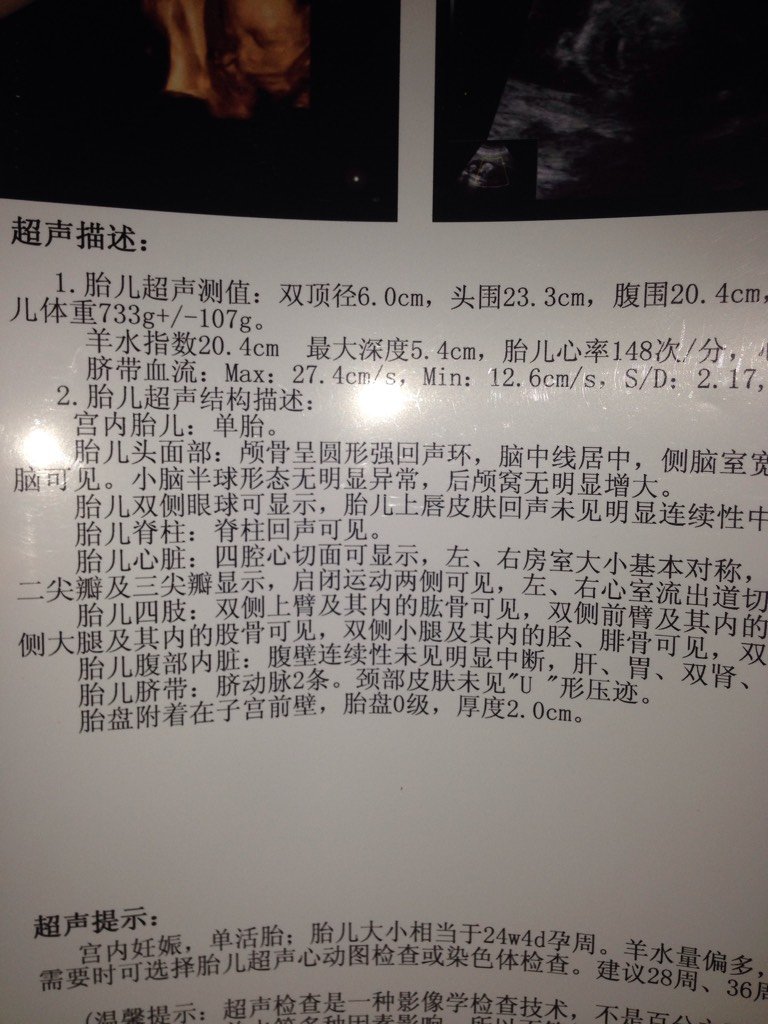 超声描述:
1.胎儿超声测值: 双顶径6.0cm, 头围23.3cm, 腹围20.4cm,
儿体重733g+/-107g。
羊水指数20.4cm 最大深度5.4cm, 胎儿心率148次/分,
脐带血流: Max: 27.4cm/s, Min: 12.6cm/s, S/D: 2.17,
2.胎儿超声结构描述:
宫内胎儿: 单胎。
胎儿头面部: 颅骨呈圆形强回声环, 脑中线居中, 侧脑室宽
脑可见。小脑半球形态无明显异常, 后颅窝无明显增大。
胎儿双侧眼球可显示, 胎儿上唇皮肤回声未见明显连续性中
胎儿脊柱: 脊柱回声可见。
胎儿心脏: 四腔心切面可显示, 左、右房室大小基本对称,
二尖瓣及三尖瓣显示, 启闭运动两侧可见, 左、右心室流出道切
胎儿四肢: 双侧上臂及其内的肱骨可见, 双侧前臂及其内的
侧大腿及其内的股骨可见, 双侧小腿及其内的胫、腓骨可见, 双
胎儿腹部内脏: 腹壁连续性未见明显中断, 肝、胃、双肾、
胎儿脐带: 脐动脉2条。颈部皮肤未见"U "形压迹。
胎盘附着在子宫前壁, 胎盘0级, 厚度2.0cm。
超声提示:
宫内妊娠, 单活胎; 胎儿大小相当于24w4d孕周。羊水量偏多,
需要时可选择胎儿超声心动图检查或染色体检查。建议28周、36周
(温馨提示: 超声检查是一种影像学检查技术, 不是百分